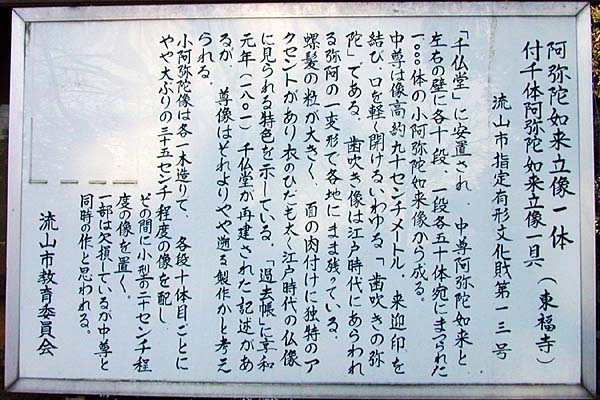 阿弥陀如来立像一体
付千体阿弥陀如来立像一具（東福寺）
流山市指定有形文化財第一三号
「千仏堂」に安置され、中尊阿弥陀如来と
左右の壁に各十段、一段各五十体宛にまつられた
一〇〇〇体の小阿弥陀如来像から成る。
中尊は像高約九十センチメートル、来迎印を
結び、口を軽く開けるいわゆる「歯吹きの弥
陀」である。歯吹き像は江戸時代にあらわれ
る弥阿の一変形で各地にまま残っている。
螺髪の粒が大きく、面の肉付けに独特のア
クセントがあり衣のひだも太く江戸時代の仏像
に見られる特色を示している。「過去帳」に享和
元年（一八〇一）千仏堂が再建された記述があ
るが、尊像はそれよりやや遡る製作かと考え
られる。
小阿弥陀像は各一木造りで、各段十体目ごとに
やや大ぶりの三十五センチ程度の像を配し
その間に小型の二十センチ程
度の像を置く。
一部は欠損しているが中尊と
同時の作と思われる。
流山市教育委員会